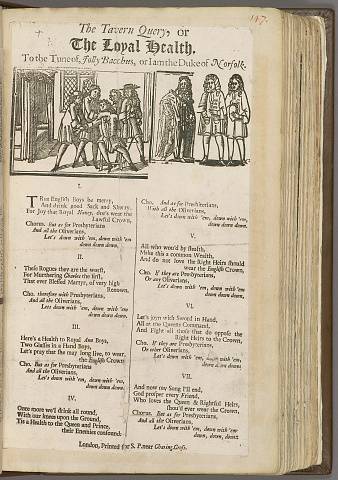 147.
The Tavern Query, or
The Loyal Health.
To the Tune of, Jolly Bacchus, or I am the Duke of Norfolk.
I.
True English Boys be merry,
And drink good Sack and Sherry,
For Joy that Royal Nancy, does wear the
Lawful Crown,
Chorus. But as for Presbyterians,
And all the Oliverians,
Let's down with 'em, down with 'em
down down down.
II.
These Rogues they are the worst,
For Murthering Charles the first,
That ever Blessed Martyr, of very high
Renown,
Cho. therefore with Presbyterians,
And all the Oliverians,
Lets down with 'em, down with 'em,
down down down.
III.
Here's a Health to Royal Ann Boys,
Two Glasses in a Hand Boys,
Let's pray that she may long live, to wear
the English Crown
Cho. But as for Presbyterians
And all the Oliverians,
Let's down with 'em, down with 'em,
down down down.
IV.
Once more we'll drink all round,
With our knees upon the Ground,
Tis a Health to the Queen and Prince,
their Enemies confound:
Cho. And as for Presbyterians,
With all the Oliverians,
Let's down with 'em, down with 'em,
down down down.
V.
All who wou'd by stealth,
Make this a common Wealth,
And do not love the Right Heirs should
wear the English Crown,
Cho. If they are Presbyterians,
Or any Oliverians,
Let's down with 'em, down with 'em,
down down down.
VI.
Let's joyn with Sword in Hand,
All at the Queens Command,
And Fight all those that do oppose the
Right Heirs to the Crown.
Cho. If they are Presbyterians,
Or other Oliverians,
Let's down with 'em, down with 'em,
down down down
VII.
And now my Song I'll end,
God prosper every Friend,
Who loves the Queen & Rightful Heirs,
thou'd ever wear the Crown,
Chorus. But as for Presbyterians,
And all the Oliverians,
Let's down with 'em, down with 'em,
down, down, down.
London, Printed for S. P. near Charing Cross.